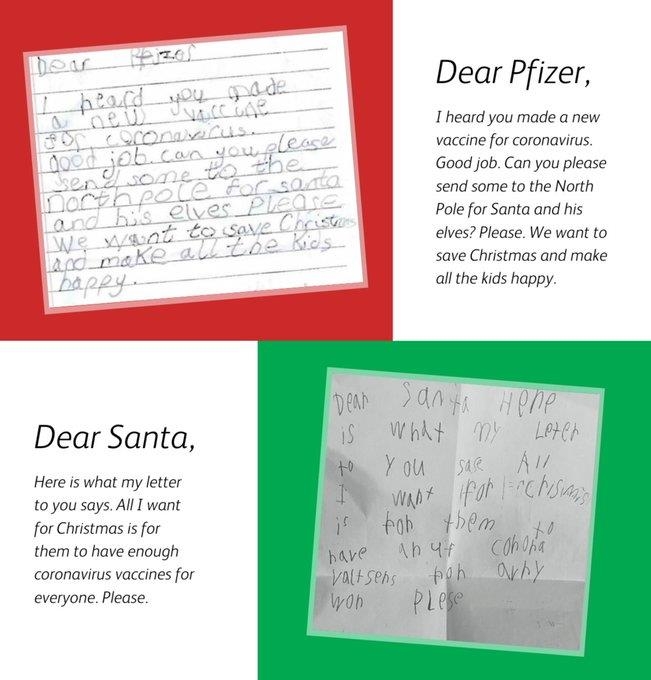 Dear Pfizer
I heard you made
a new vaccine
for coronavirus.
good job. can you please
send some to the
northpole for santa
and his elves please
we want to save Christmas
and make all the kids
happy.
Dear Pfizer,
I heard you made a new
vaccine for coronavirus.
Good job. Can you please
send some to the North
Pole for Santa and his
elves? Please. We want to
save Christmas and make
all the kids happy.
Dear Santa,
Here is what my letter
to you says. All I want
for Christmas is for
them to have enough
coronavirus vaccines for
everyone. Please.
Dear Santa Hene
is what my Leter
to You sase All
I want for
is for them to
have anuf conona
valtsens
won Plese